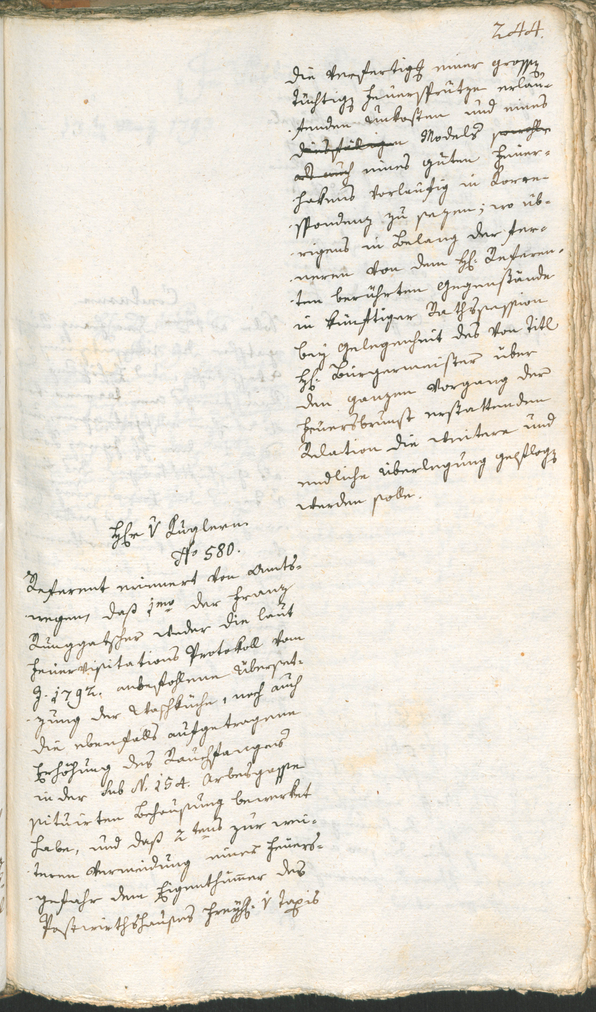 244.
die Verfertigg einer grossen
tüchtigen Feuerspritze erlau-
fenden Unkosten und eines
diensfälligen Models sowohl
als auch eines guten Feuer-
hakens vorläufig in Korre-
spondenz zu sezen; wo üb-
rigens in Belang der fer-
neren von dem H: Referen-
ten berührten Gegenstände
in künftiger Rathssession
bey Gelegenheit des von Titl
H: Bürgermeister über
den ganzen Vorgang der
Feuersbrunst erstattenden
Relation die weitere und
endliche Überlegung gepflogen
werden solle.
Hr v Kuglern
No 580.
Referent erinnert von Amts-
wegen, daß 1mo der Franz
Runggatscher weder die laut
Feuervisitations Protokoll vom
J. 1792. anbefohlene Überset-
zung der Waschküche, noch auch
die ebenfalls aufgetragene
Erhöhung des Rauchfanges
in der sub N. 154. Arbesgasse
situirten Behausung bewerket
habe, und daß 2tens zur wei-
teren Vermeidung einer Feuers-
gefahr dem Eigenthümer des
Postwirthshauses Freyh: v Taxis